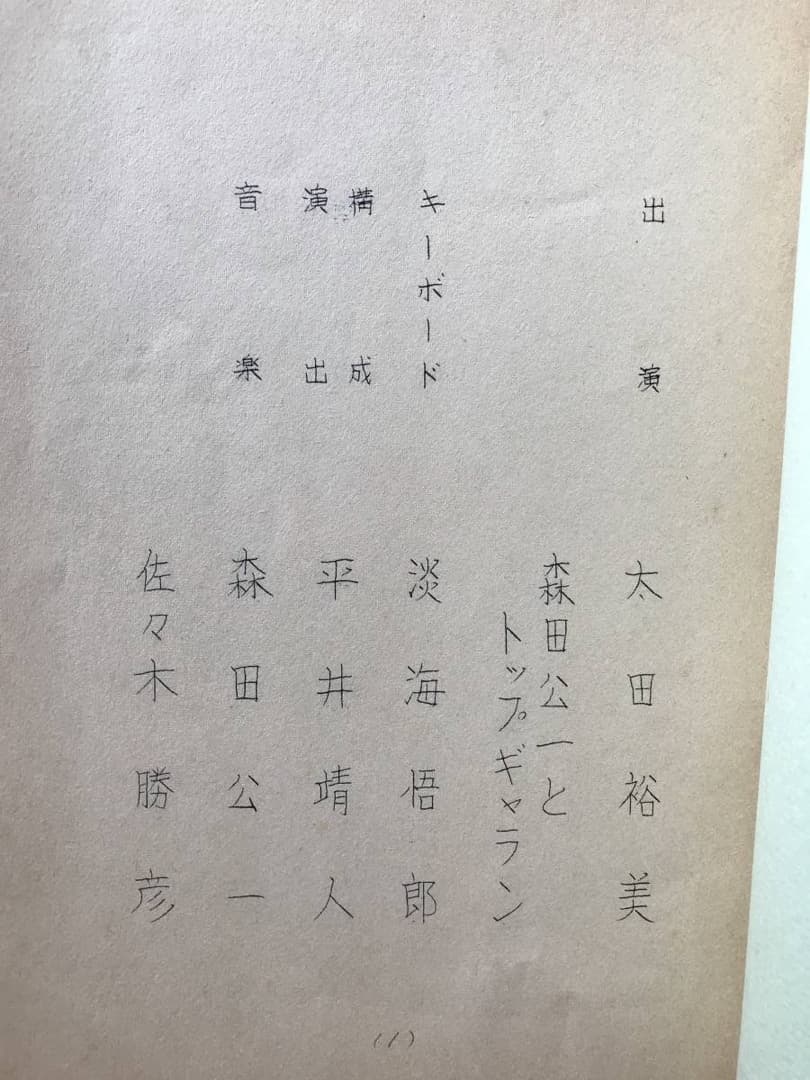 出演 太田裕美
森田公一と
トップギャラン
キーボード 淡海悟郎
構成
演出 平井靖人
音楽 森田公一
佐々木勝彦
(1)